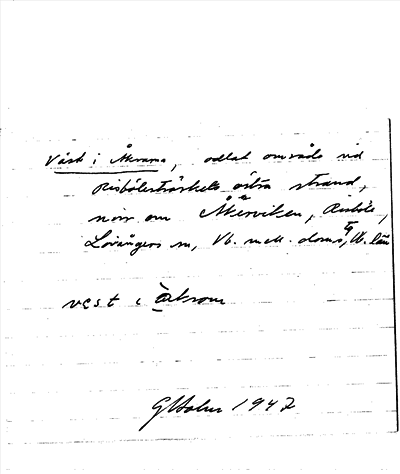 Väst i Åkrarna, odlat område vid
Risböleträskets östra strand,
norr om Åkerviken, Risböle,
Lövångers sn, Vb. mell. doms, Vb. län
vest i åkrom
GHolm 1947